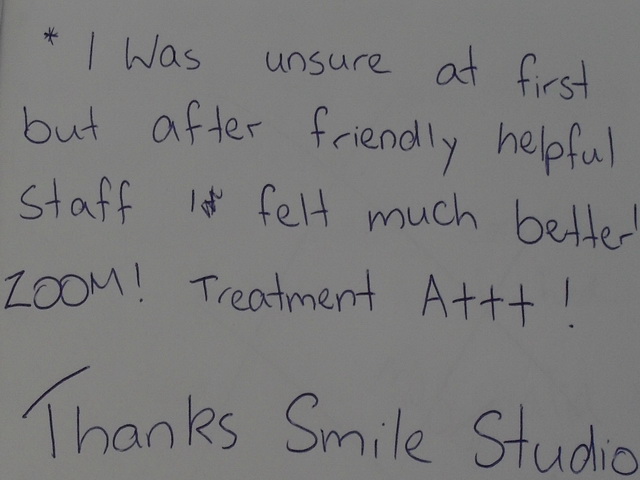 * I Was unsure at first
but after friendly helpful
staff I felt much better!
ZOOM! Treatment A+++!
Thanks Smile Studio